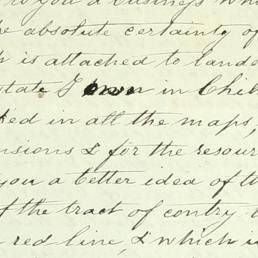 to you a business whi
he absolute certainty of
h is attached to lande
state I own in Chih
ked in all the maps,
nsions & for the resour
you a better idea of th
of the tract of contry
red line, & which is